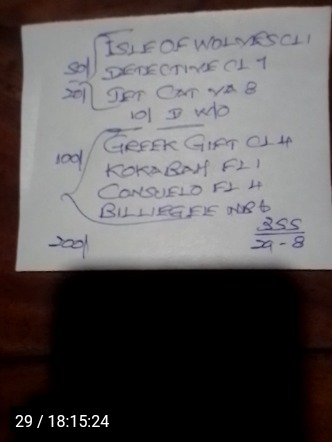 ISLE OF WOLVES CL 1
50/ DETECTIVE CL 7
20/ JET CAT YA 8
10/ D W/O
100/ GREEK GIFT CL 4
KOKABAH FL 1
CONSUELO FL 4
BILLIEGEE NB 6
355
200/ 29-8
29 / 18:15:24